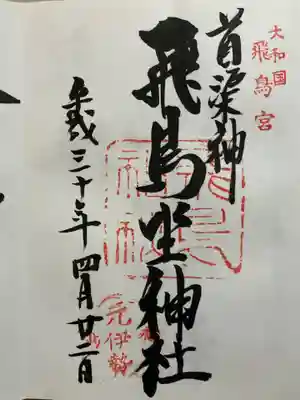 大和国
飛鳥宮
首渠神
飛鳥坐神社
元伊勢
平成三十年四月廿二日